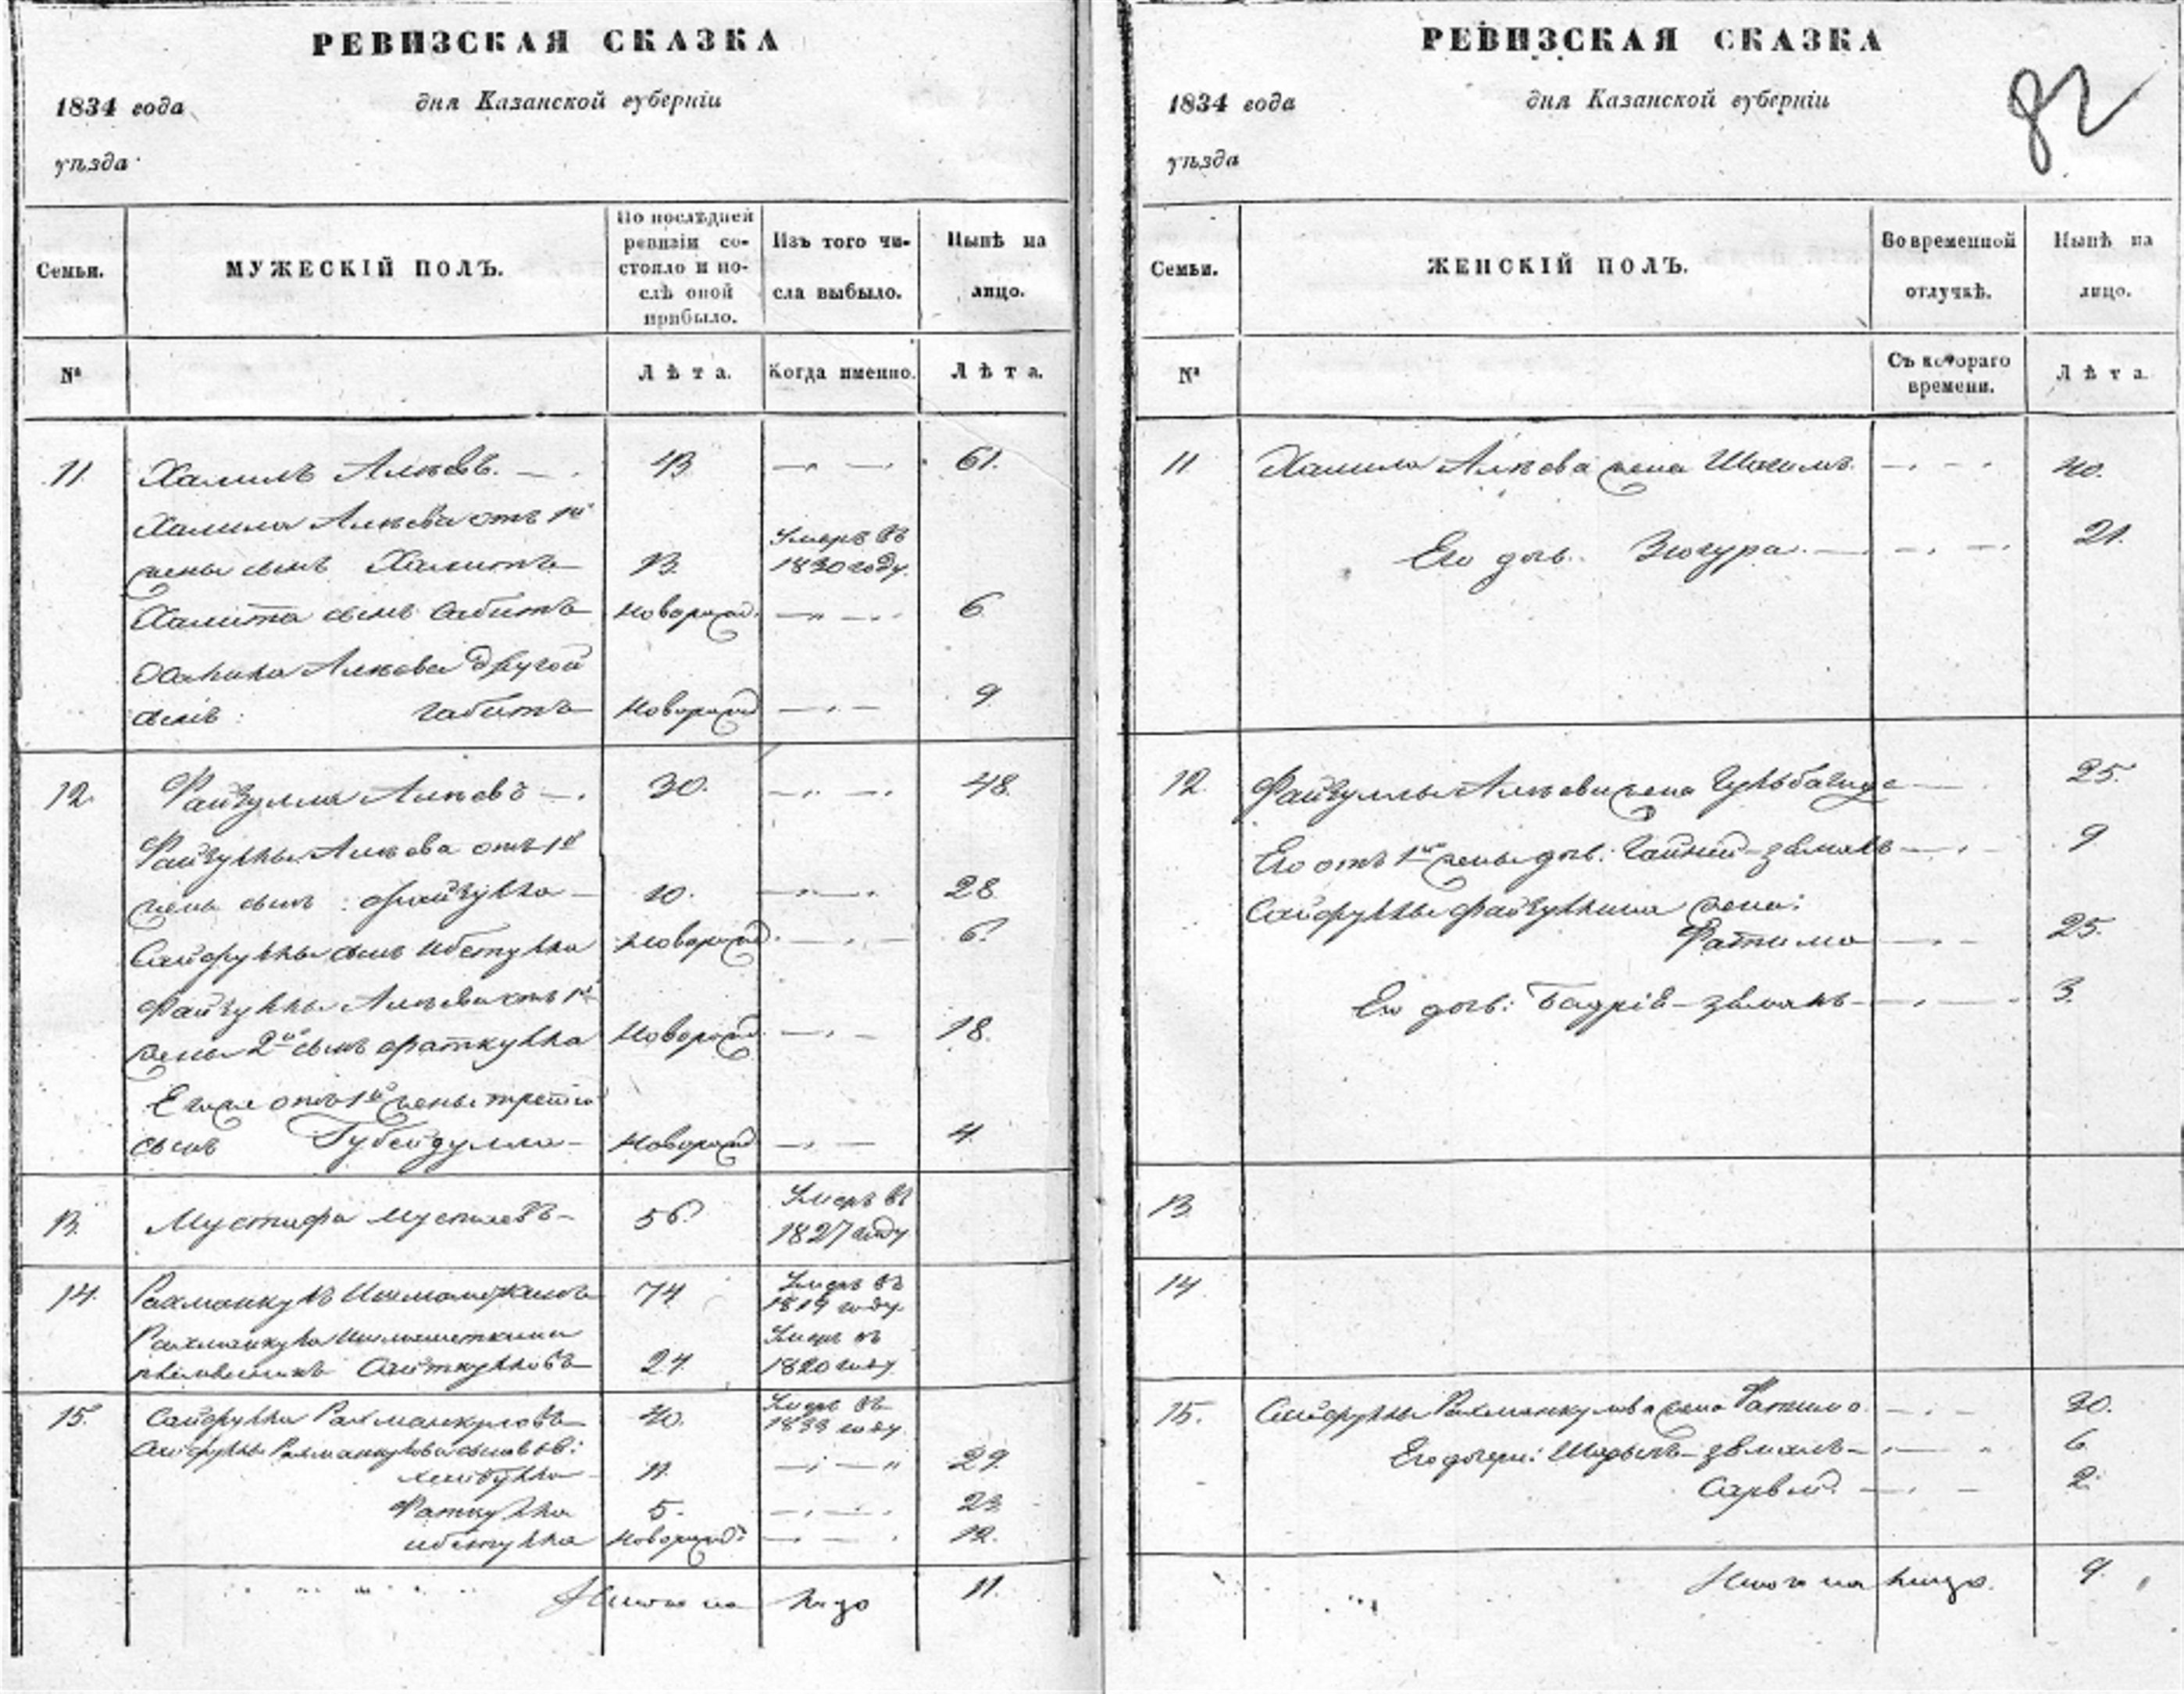 РЕВИЗСКАЯ СКАЗКА
1834 года дня Казанской губерніи
уѣзда
Семьи.
МУЖЕСКІЙ ПОЛЪ.
По послѣдней
ревизіи со-
стояло и по-
слѣ оной
прибыло.
Изъ того чи-
сла выбыло.
Нынѣ на
лицо.
№
Лѣта.
Когда именно.
Лѣта.
11. Халилъ Алкѣевъ. 43 61.
Халила Алкѣева отъ 1й
жены сынъ Халитъ 13. Умеръ въ 1830 году.
Халита сынъ Сабитъ Новорожд. 6.
Алкѣева другой
сынъ: Габитъ Новорожд. 9
12. Файзулла Алкѣевъ 30. 48.
Файзуллы Алкѣева отъ 1й
жены сынъ: 10. 28.
Сайфуллы сынъ Ибетулла Новорожд. 6.
Файзуллы Алкѣева отъ 1й
жены 2й сынъ Фаткулла Новорожд. 18.
Его же отъ 1й жены третій
сынъ Губейдулла Новорожд. 4.
13. Мустафа 56. Умеръ въ 1827 году
14. Рахманкулъ 74 Умеръ въ 1819 году.
Рахманкула
племянникъ Аиткуловъ 24. Умеръ въ 1820 году
15. Сайфулла Рахманкуловъ 40. Умеръ въ 1833 году
Сайфуллы Рахманкулова сыновья:
Хейбулла 11. 29.
Фаткулла 5. 23.
Ибетулла Новорожд. 12.
Итого на лицо 11.
РЕВИЗСКАЯ СКАЗКА
82
1834 года дня Казанской губерніи
уѣзда
Семьи.
ЖЕНСКІЙ ПОЛЪ.
Во временной
отлучкѣ.
Нынѣ на
лицо.
№
Съ котораго
времени.
Лѣта
11 Халила Алкѣева жена 40.
Его дочь. Зюгура. 21.
12. Файзуллы Алкѣева жена 25.
Его отъ 1й жены дочь: 9
Сайфуллы Файзуллина жена:
Фатима 25.
Его дочь: Бадрій-земалъ 3.
13.
14
15. Сайфуллы Рахманкулова жена Фатима 30.
Его дочери: 6.
Сарвий. 2.
Итого на лицо. 9.